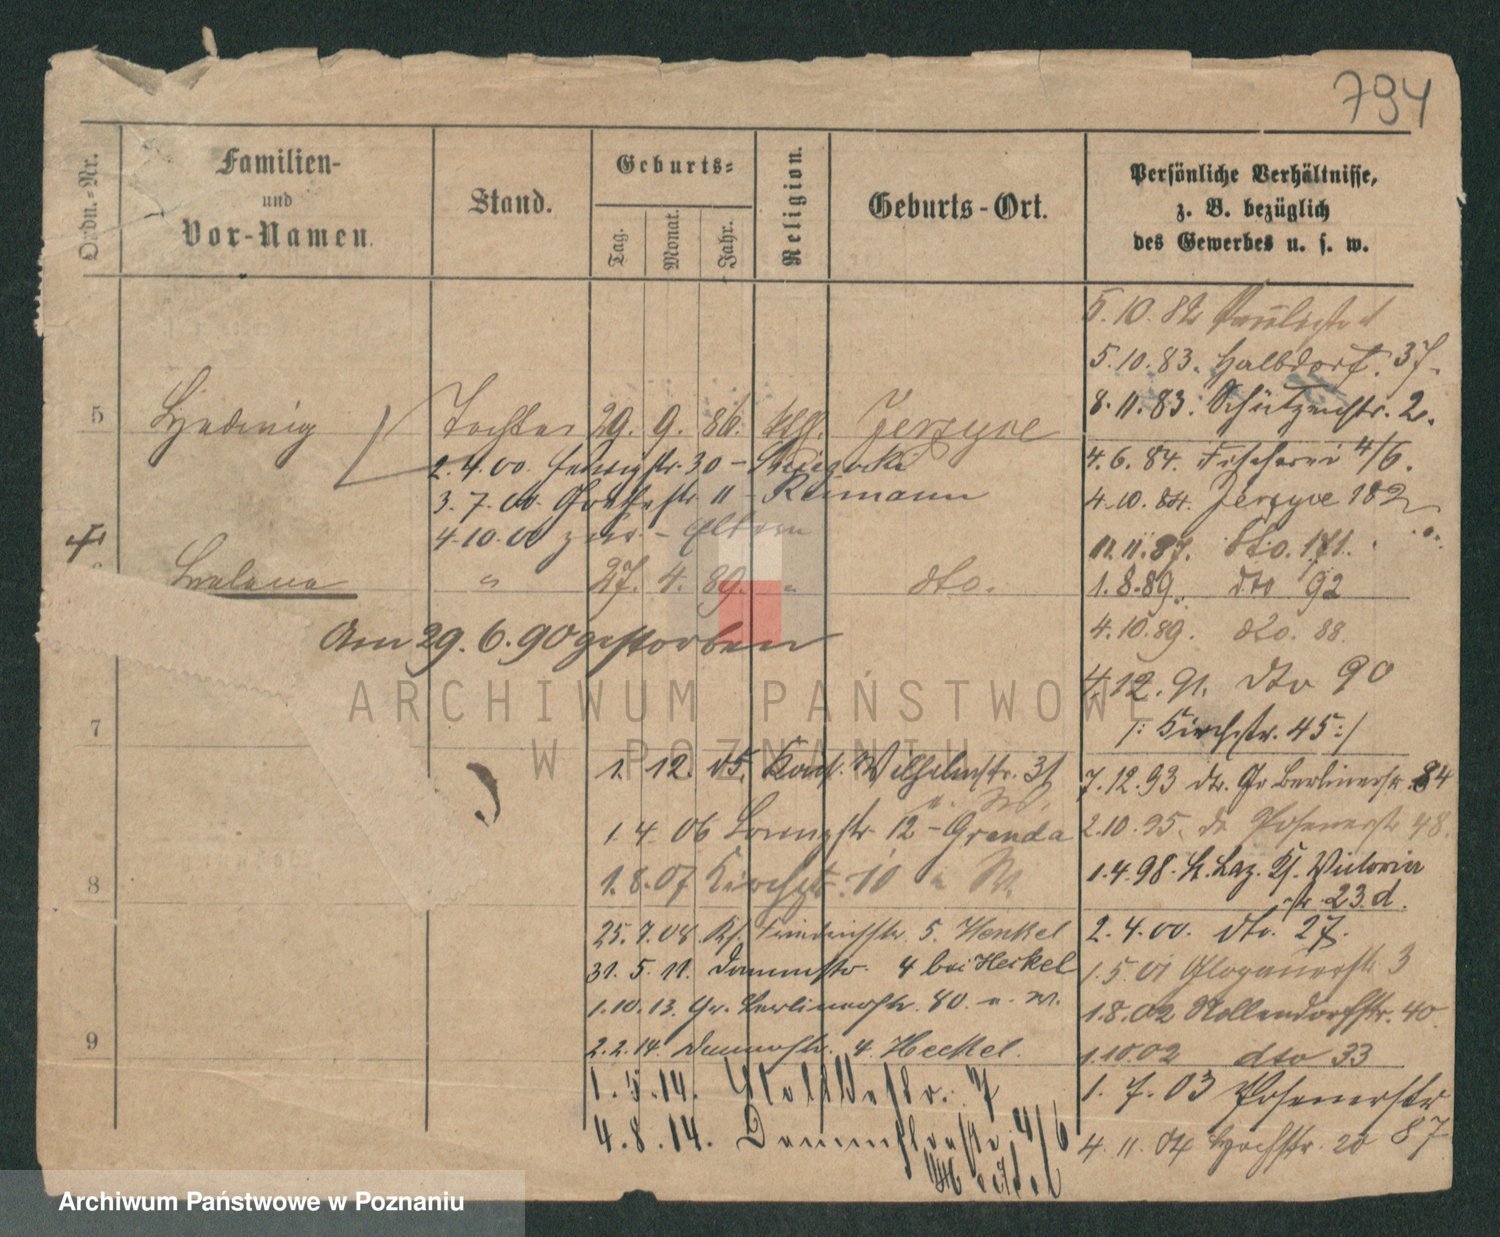 794
Ordn.-Nr.
Familien-
und
Vor-Namen.
Stand.
Geburts-
Tag.
Monat.
Jahr.
Religion.
Geburts-Ort.
Persönliche Verhältnisse,
z. B. bezüglich
des Gewerbes u. s. w.
5 Hedwig Tochter 29. 9. 86. kth. Jerzyce
2.4.00. str. 30 -
3.7.00. str. 11 - Reimann
4.10.00 zur. - Eltern
Helene " 27. 4. 89. " dto.
Am 29.6.90 gestorben
7
1. 12. 05. Wilhelmstr. 31
u. W.
1. 4. 06 str. 12 - Grenda
8
1.8.07 Kirchstr. 10 u W.
25.7.08 Friedrichstr. 5. Henkel
31. 5. 11. Dammstr. 4 bei Heckel
1.10.13. Gr. Berlinerstr. 80. u. W.
9
2.2.14. Dammstr. 4. Heckel.
1.5.14. Moltkestr. 7
4.8.14. Dammstrasse 4/6
5.10.82
5.10.83. Halbdorf. 37.
8.11.83. Schützenstr. 2.
4.6.84. Fischerei 4/6.
4.10.84. Jerzyce 182
11.11.87. dto. 171.
1.8.89. dto 92
4.10.89. dto. 88.
4.12.91. dto 90
/: Kirchstr. 45:/
7.12.93 dto. Gr Berlinerstr. 84
2.10.95. do Posenerstr 48.
1.4.98. St. Laz. Victoria
str. 23.d.
2.4.00. dto. 27.
1.5.01 Glogauerstr 3
1.8.02 Nollendorfstr. 40.
1.10.02 dto 33
1.7.03 Posenerstr
87
4.11.04 Hochstr. 20
ARCHIWUM PAŃSTWOWE
W POZNANIU
Archiwum Państwowe w Poznaniu